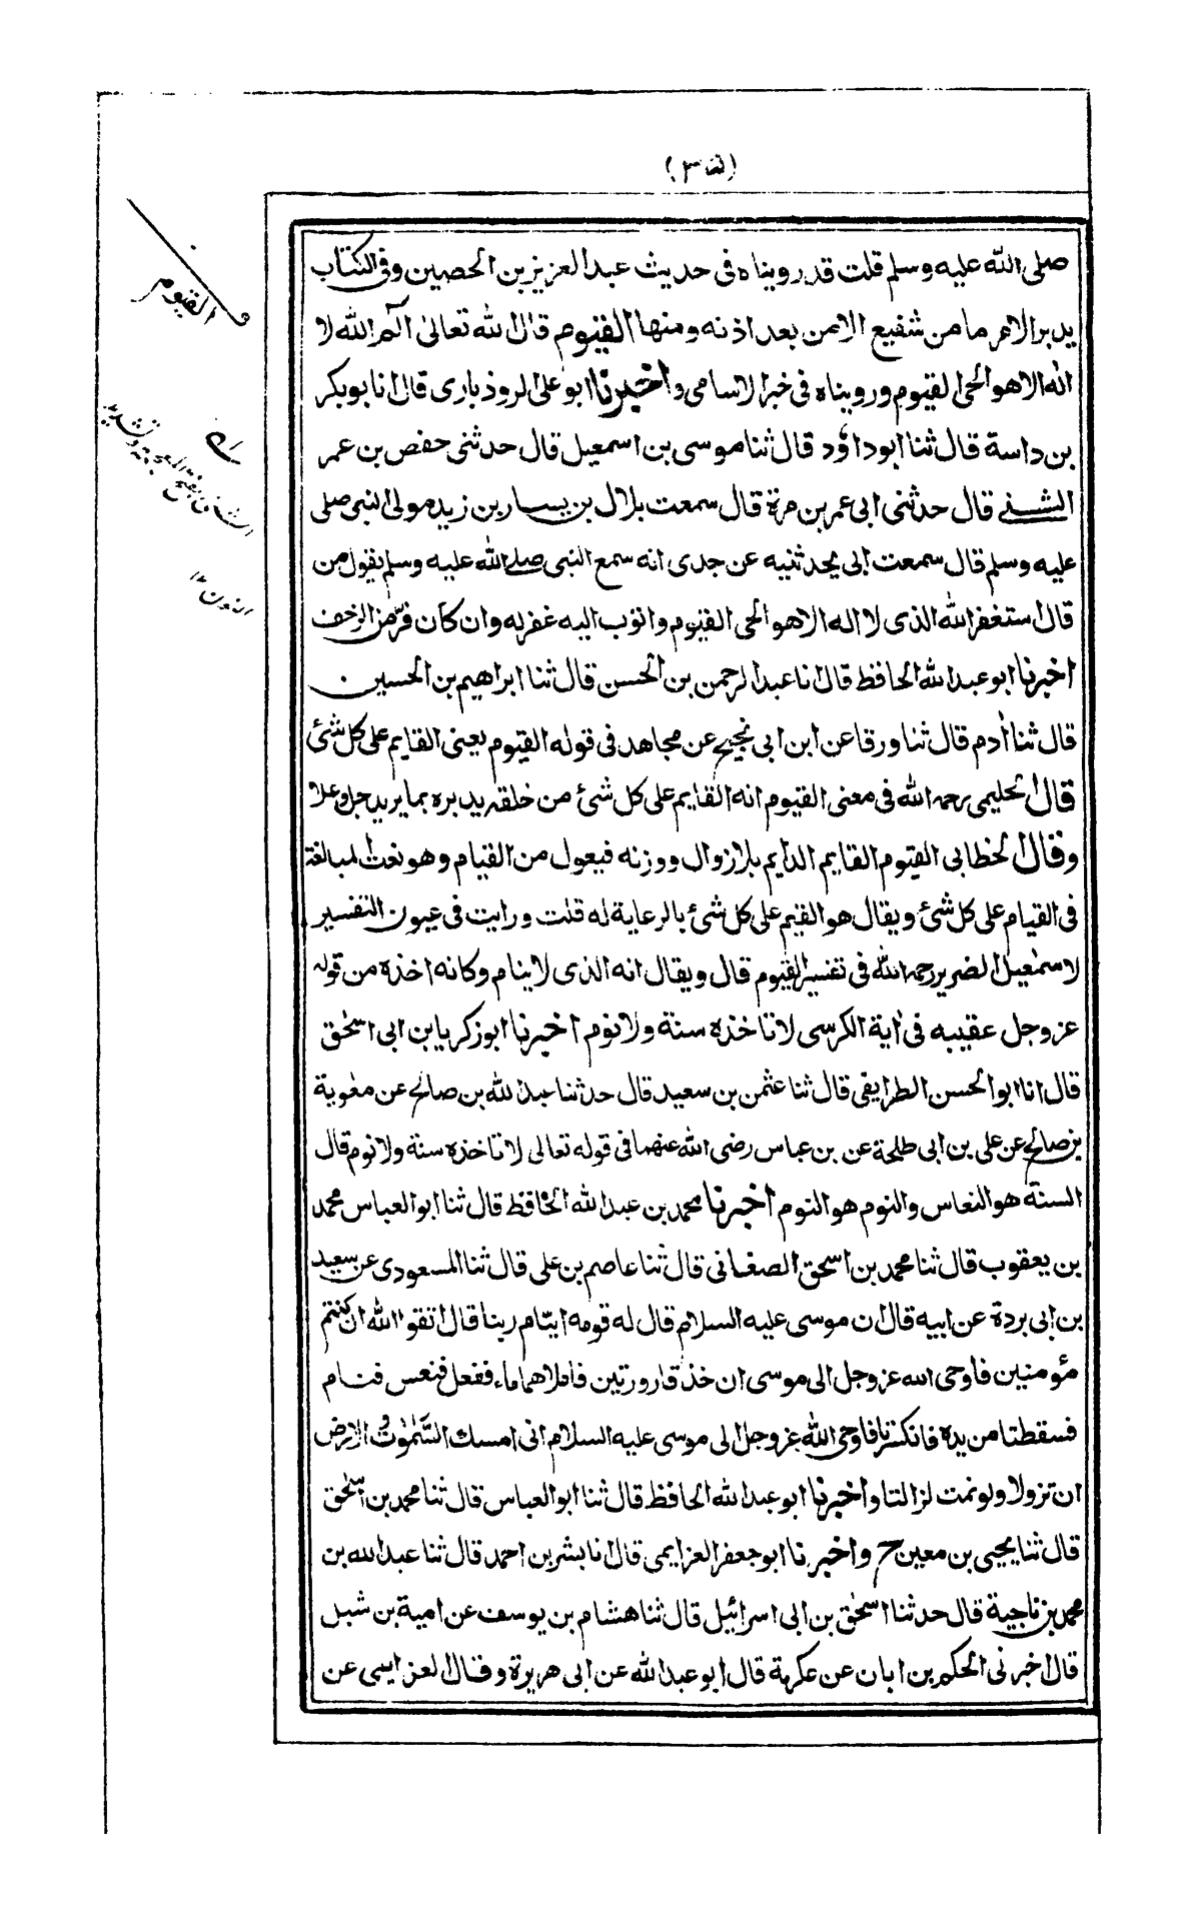 صلى الله عليه وسلم قلت قد رويناه فى حديث عبد العزيز بن الحصين وفى الكتاب
يدبر الامر ما من شفيع الا من بعد اذنه ومنها القيوم قال الله تعالى الم الله لا
اله الا هو الحى القيوم ورويناه فى خبر الاسامى واخبرنا ابو على الروذبارى قال انا بو بكر
بن داسة قال ثنا ابو داؤد قال ثنا موسى بن اسمعيل قال حدثنى حفص بن عمر
الشنى قال حدثنى ابى عمر بن مرة قال سمعت بلال بن يسار بن زيد مولى النبى صلى
عليه وسلم قال سمعت ابى يحدثنيه عن جدى انه سمع النبى صلى الله عليه وسلم يقول من
قال استغفر الله الذى لا اله الا هو الحى القيوم واتوب اليه غفر له وان كان فر من الزحف
اخبرنا ابو عبد الله الحافظ قال انا عبد الرحمن بن الحسن قال ثنا ابراهيم بن الحسين
قال ثنا أدم قال ثنا ورقا عن ابن ابى نجيح عن مجاهد فى قوله القيوم يعنى القايم على كل شئ
قال الحليمى رحمه الله فى معنى القيوم انه القايم على كل شئ من خلقه يدبره بما يريد جل وعلا
وقال الخطابى القيوم القايم الدايم بلا زوال ووزنه فيعول من القيام وهو نعت لمبالغة
فى القيام على كل شئ ويقال هو القيم على كل شئ بالرعاية له قلت ورايت فى عيون التفسير
لاسمعيل الضرير رحمه الله فى تفسير القيوم قال ويقال انه الذى لا ينام وكانه اخذه من قوله
عز وجل عقيبه فى أية الكرسى لا تاخذه سنة ولا نوم اخبرنا ابو زكريا بن ابى اسحق
قال انا ابو الحسن الطرايفى قال ثنا عثمن بن سعيد قال حدثنا عبد الله بن صالح عن معوية
بن صالح عن على بن ابى طلحة عن بن عباس رضى الله عنهما فى قوله تعالى لا تاخذه سنة ولا نوم قال
السنة هو النعاس والنوم هو النوم اخبرنا محمد بن عبد الله الحافظ قال ثنا ابو العباس محمد
بن يعقوب قال ثنا محمد بن اسحق الصغانى قال ثنا عاصم بن على قال ثنا المسعودى عن سعيد
بن ابى بردة عن ابيه قال ان موسى عليه السلام قال له قومه اينام ربنا قال اتقوا الله ان كنتم
مؤمنين فاوحى الله عز وجل الى موسى ان خذ قارورتين فاملاهما ماء ففعل فنعس فنام
فسقطتا من يده فانكسرتا فاوحى الله عز وجل الى موسى عليه السلام انى امسك السموت والارض
ان تزولا ولو نمت لزالتا واخبرنا ابو عبد الله الحافظ قال ثنا ابو العباس قال ثنا محمد بن اسحق
قال ثنا يحيى بن معين ح واخبرنا ابو جعفر العزايمى قال انا بشر بن احمد قال ثنا عبد الله بن
محمد بن ناجية قال حدثنا اسحق بن ابى اسرائيل قال ثنا هشام بن يوسف عن امية بن شبل
قال اخبرنى الحكم بن ابان عن عكرمة قال ابو عبد الله عن ابى هريرة وقال العزايمى عن
القيوم
النون ١٢